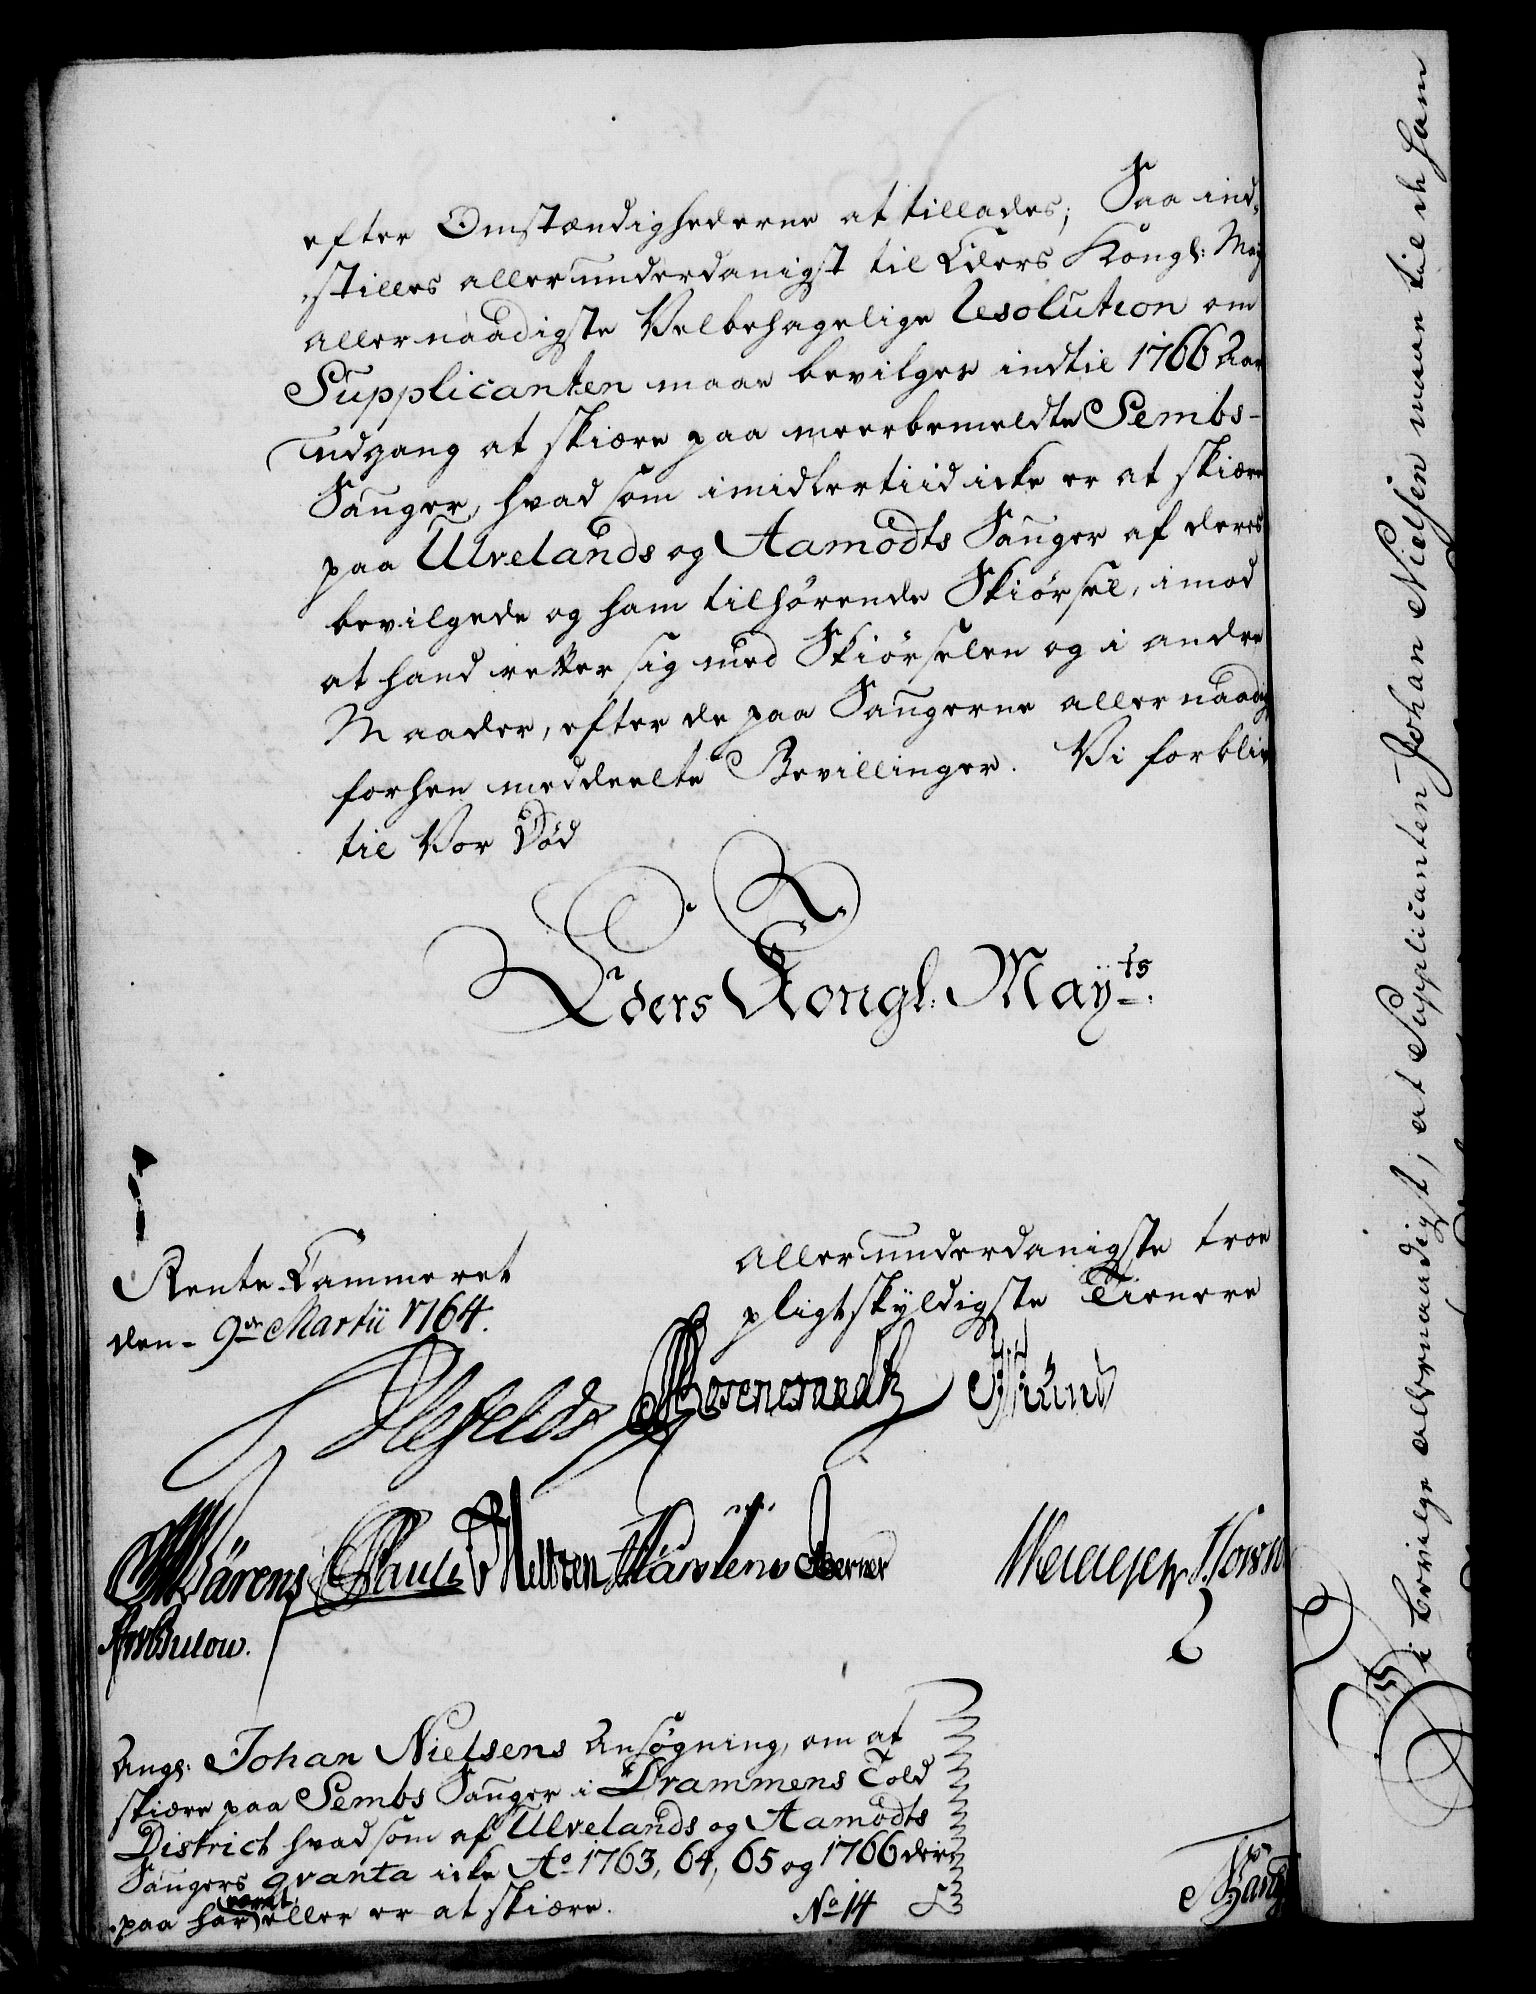 efter Omstændighederne at tillades; Saa ind-
stilles allerunderdanigst til Eders Kongl: May
allernaadigste Velbehagelige Resolution om
Supplicanten maae bevilges indtil 1766 Aars
udgang at skiære paa meerbemeldte Sembs-
Sauger, hvad som imidlertiid icke er at skiære
paa Ulvelands og Aamodts Sauger af deres
bevilgede og ham tilhørende Skiørsel, imod
at hand retter sig med Skiørselen og i andre
Maader, efter de paa Saugerne allernaadigst
forhen meddeelte Bevillinger. Vi forblive
til Vor Død
Eders Kongl: Mayts:
allerunderdanigste troe
pligtskyldigste Tienere
Rente-Cammeret
den 9de Martii 1764.
Ahlefeldt Rosencrantz
Wärens Pauli Neltzen Karstens Berner
Bulow.
Angl: Johan Nielsens Ansøgning, om at
skiære paa Sembs Sauger i Drammens Told
District hvad som af Ulvelands og Aamodts
Saugers qvanta icke Ao 1763, 64, 65 og 1766 der
paa har været eller er at skiære.
No 14
Vi bevilge allernaadigst, at Supplicanten Johan Nielsen maae til de ham